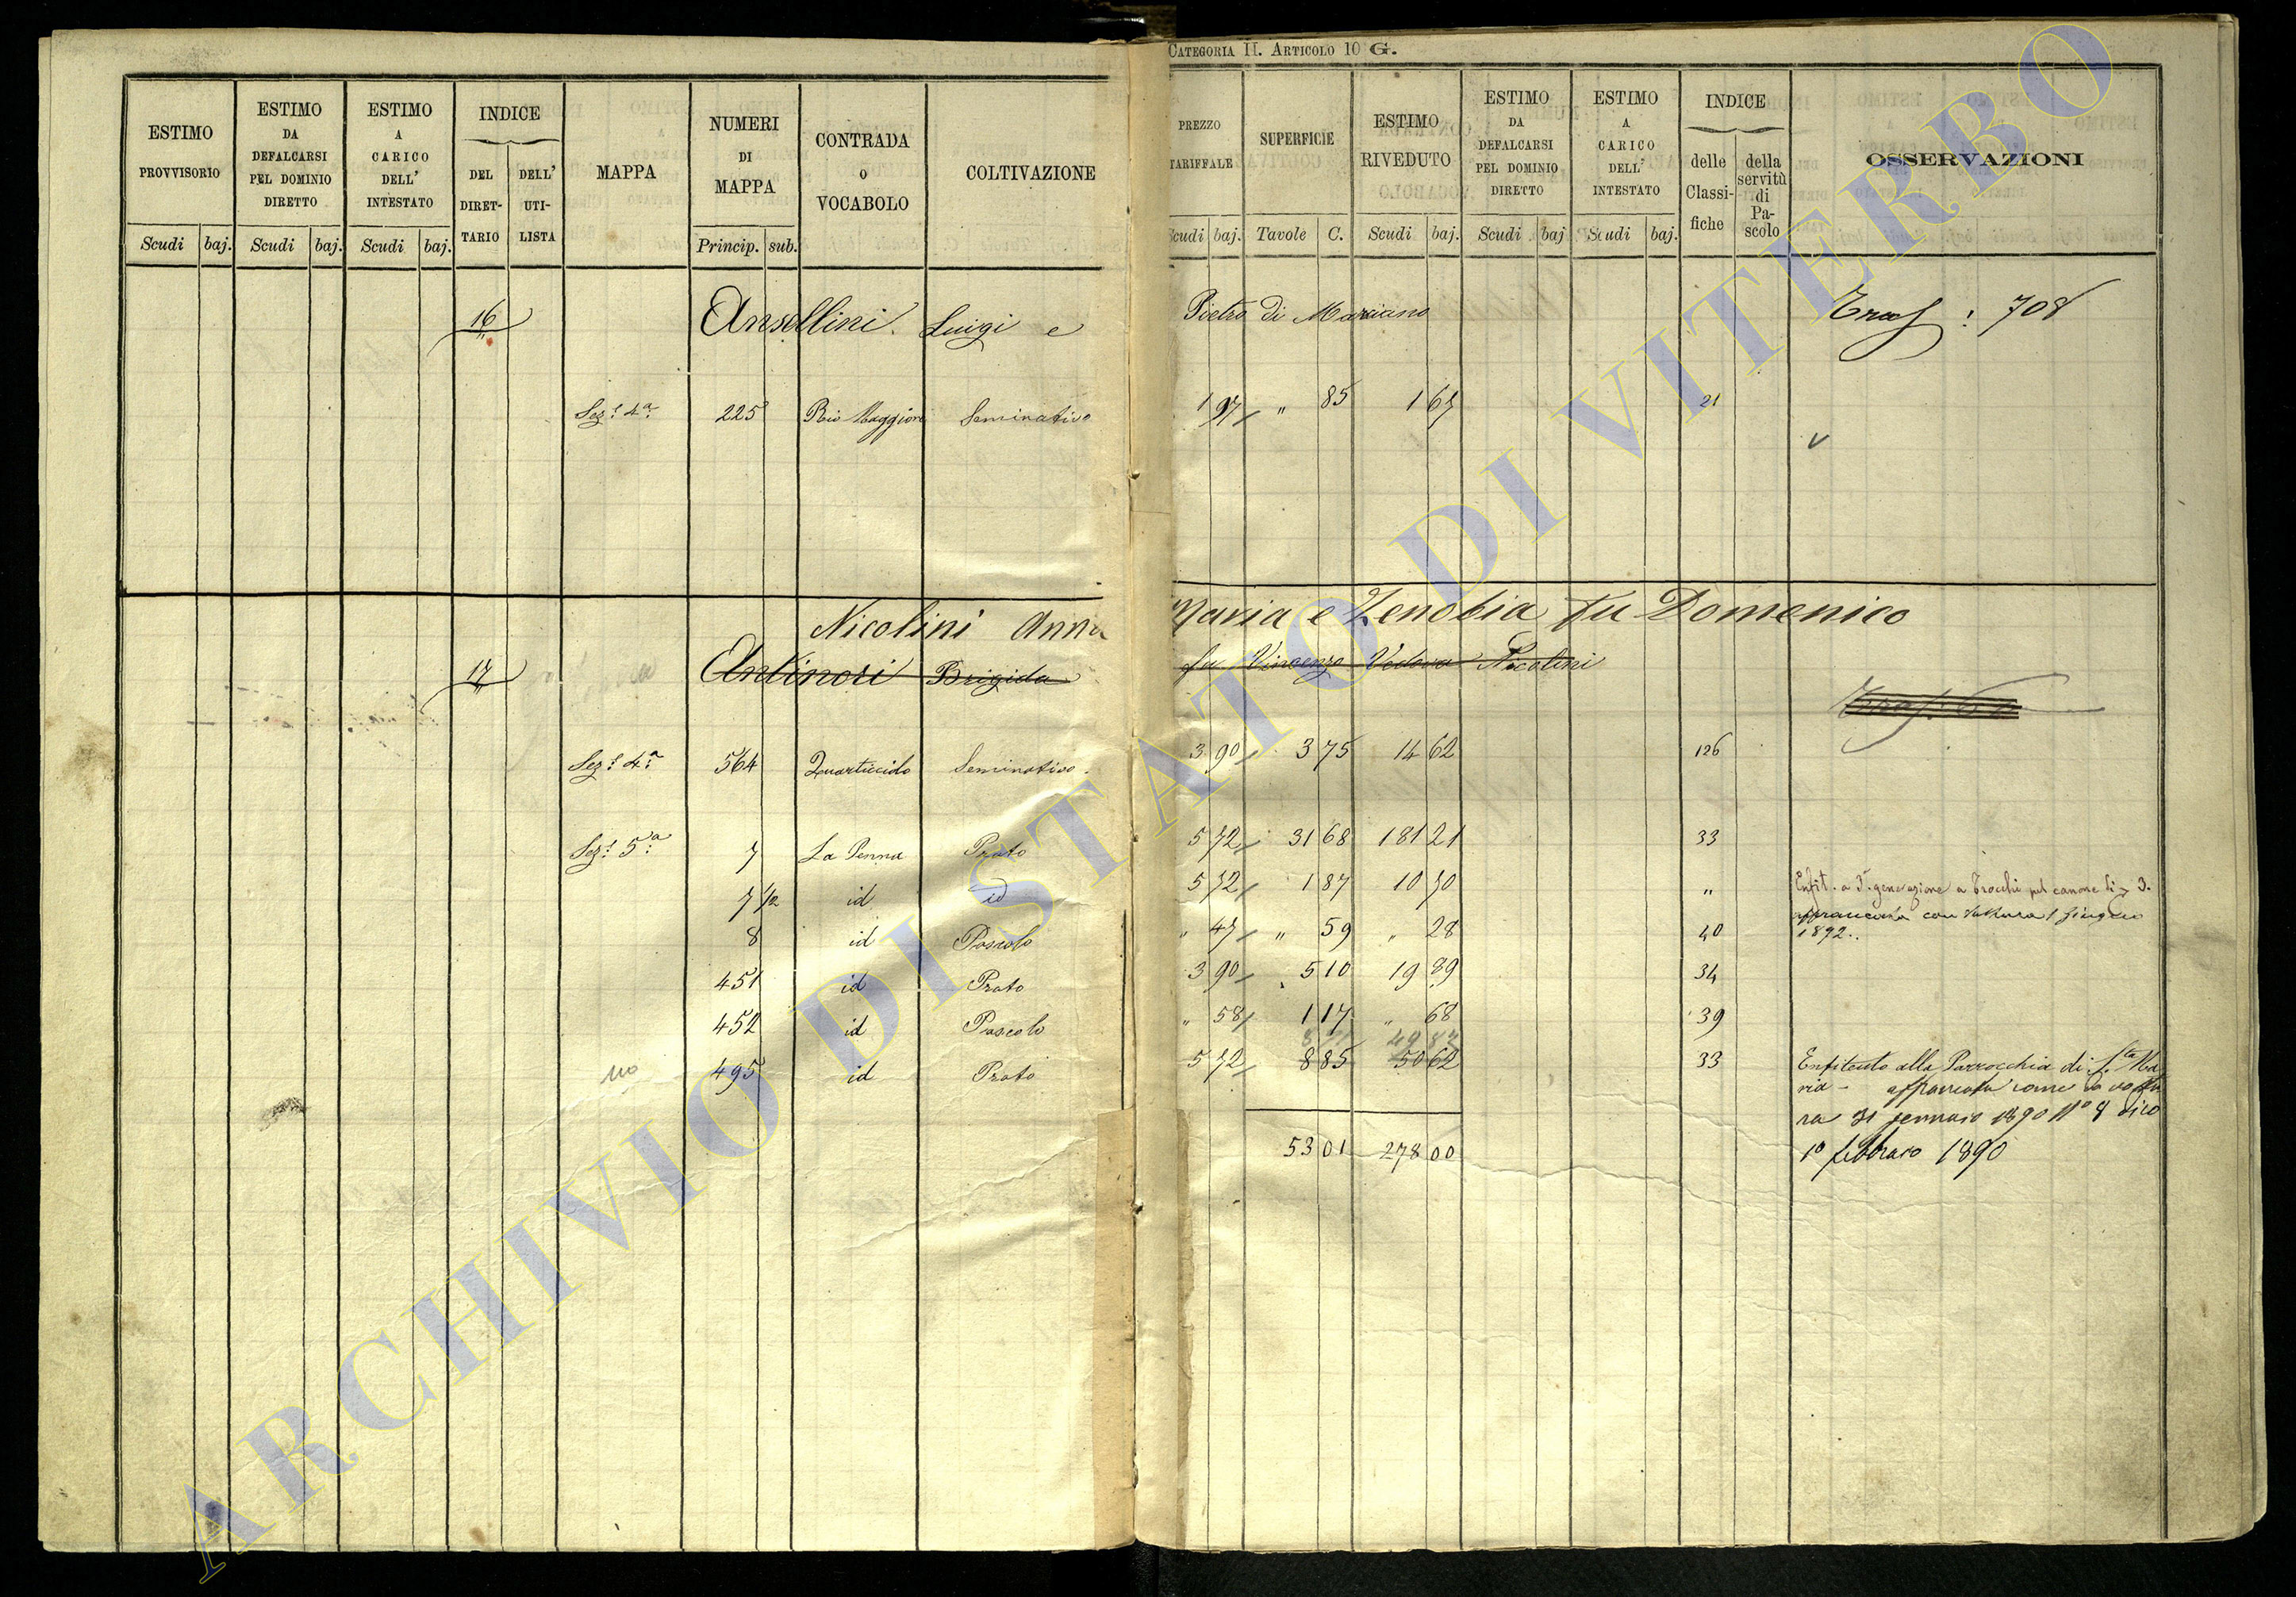 CATEGORIA II. ARTICOLO 10 G.
ESTIMO PROVVISORIO Scudi baj.
ESTIMO DA DEFALCARSI PEL DOMINIO DIRETTO Scudi baj.
ESTIMO A CARICO DELL' INTESTATO Scudi baj.
INDICE DEL DIRET- TARIO DELL' UTI- LISTA
MAPPA
NUMERI DI MAPPA Princip. sub.
CONTRADA O VOCABOLO
COLTIVAZIONE
PREZZO TARIFFALE Scudi baj.
SUPERFICIE Tavole C.
ESTIMO RIVEDUTO Scudi baj.
ESTIMO DA DEFALCARSI PEL DOMINIO DIRETTO Scudi baj
ESTIMO A CARICO DELL' INTESTATO Scudi baj.
INDICE delle Classi- fiche della servitù di Pa- scolo
OSSERVAZIONI
16 Ansellini Luigi e Pietro di Marciano Tras: 708
Sez.e 4a 225 Rio Maggiore Seminativo 1 97 " 85 1 67 21
Nicolini Anna Maria e Zenobia fu Domenico
17 Antinori Brigida fu Vincenzo Vedova Nicolini
Sez.e 4a 564 Quarticciolo Seminativo 3 90 3 75 14 62 126
Sez.e 5a 7 La Penna Prato 5 72 31 68 181 21 33
7 1/2 id id 5 72 1 87 10 70 "
Enfit. a 3a generazione a Trocchi pel canone di 3.
affrancata con voltura 1 Giugno
1892..
8 id Pascolo " 47 " 59 " 28 40
451 id Prato 3 90 5 10 19 89 34
452 id Pascolo " 58 1 17 " 68 39
no 495 id Prato 5 72 8 85 50 62 33
Enfiteuta alla Parrocchia di S.ta Ma
ria - affrancata come da voltu
ra 31 gennaio 1890 No 8 dico
1o febbraio 1890
53 01 278 00
ARCHIVIO DI STATO DI VITERBO